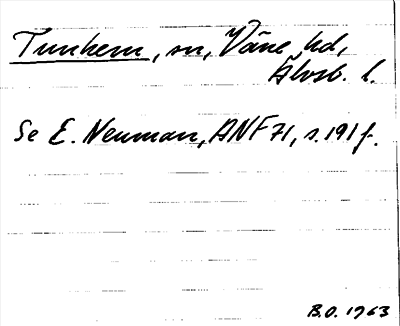 Tunhem, sn, Väne hd,
Älvsb. l.
Se E. Neuman, ANF 71, s. 191 f.
B.O. 1963